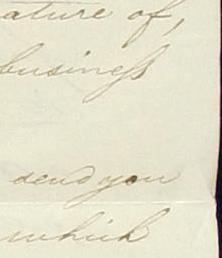 ature of,
business
send you
which